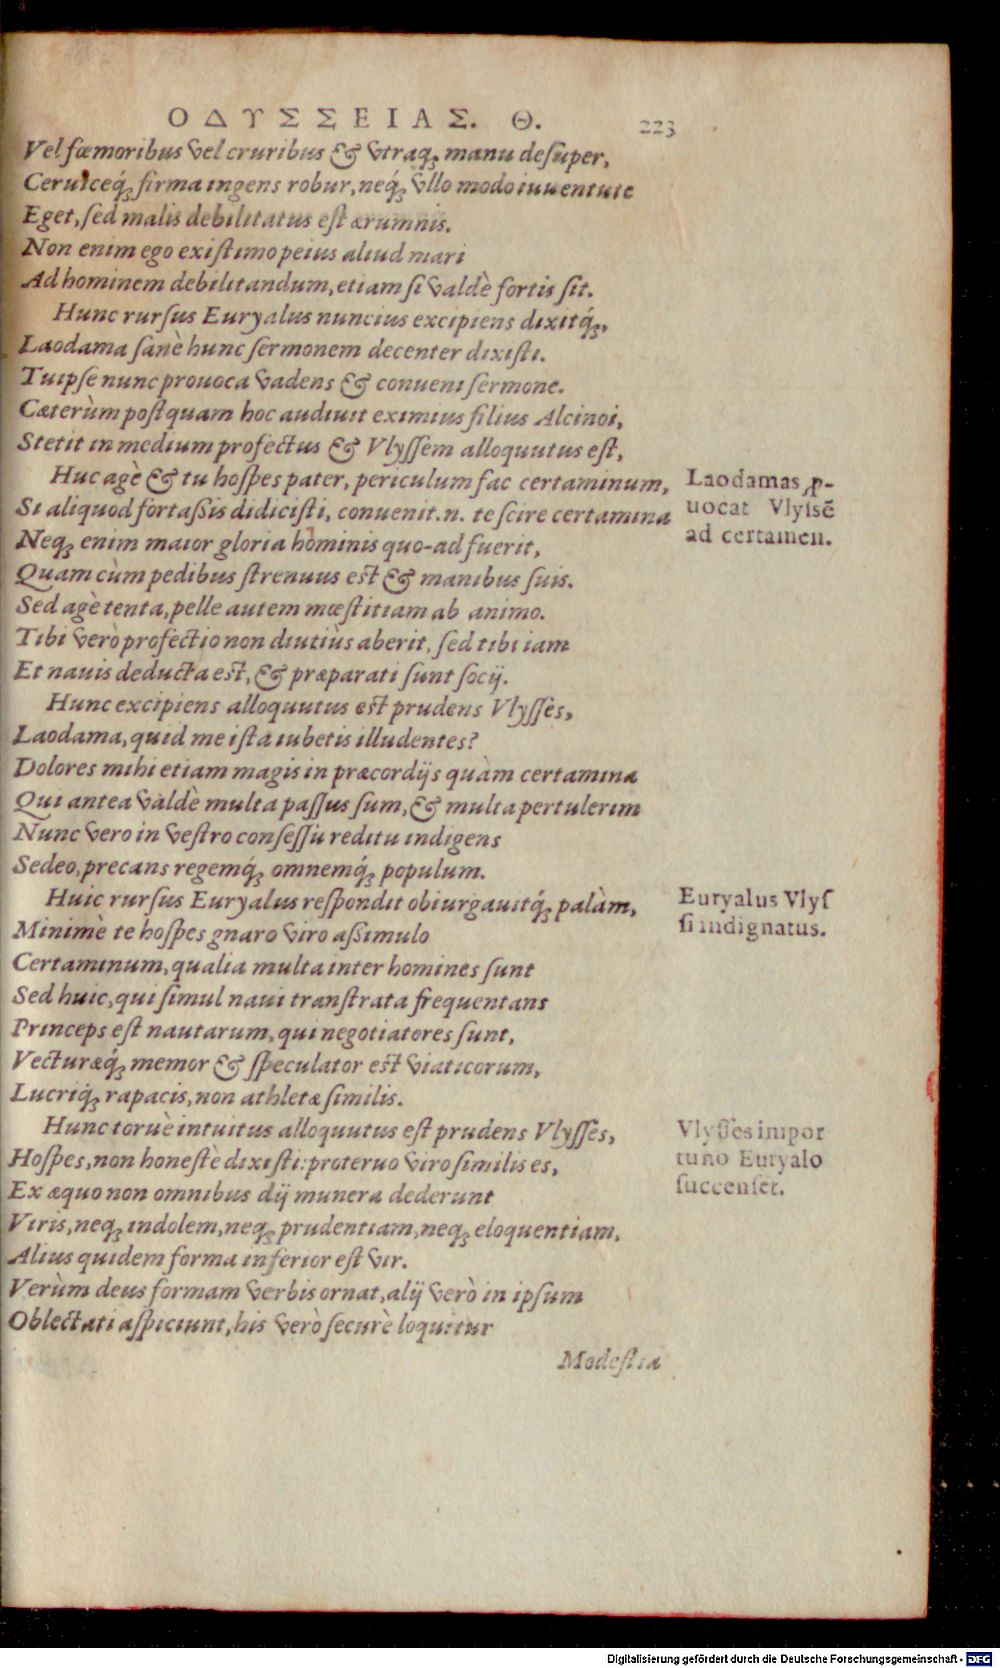 ΟΔΥΣΣΕΙΑΣ. Θ. 223
Vel fœmoribus vel cruribus & vtraq; manu desuper,
Ceruiceq́; firma ingens robur, neq́; vllo modo iuuentute
Eget, sed malis debilitatus est ærumnis.
Non enim ego existimo peius aliud mari
Ad hominem debilitandum, etiam si valdè fortis sit.
Hunc rursus Euryalus nuncius excipiens dixitq́;,
Laodama sanè hunc sermonem decenter dixisti.
Tuipse nunc prouoca vadens & conueni sermone.
Cæterùm postquam hoc audiuit eximius filius Alcinoi,
Stetit in medium profectus & Vlyssem alloquutus est,
Huc agè & tu hospes pater, periculum fac certaminum,
Si aliquod fortassis didicisti, conuenit.n. te scire certamina
Laodamas ꝓ-
uocat Vlyssē
ad certamen.
Neq; enim maior gloria hominis quo-ad fuerit,
Quam cùm pedibus strenuus est & manibus suis.
Sed agè tenta, pelle autem mœstitiam ab animo.
Tibi verò profectio non diutiùs aberit, sed tibi iam
Et nauis deducta est, & præparati sunt socij.
Hunc excipiens alloquutus est prudens Vlysses,
Laodama, quid me ista iubetis illudentes?
Dolores mihi etiam magis in præcordijs quàm certamina
Qui antea valdè multa passus sum, & multa pertulerim
Nunc vero in vestro consessu reditu indigens
Sedeo, precans regemq́; omnemq́; populum.
Huic rursus Euryalus respondit obiurgauitq́; palàm,
Euryalus Vlys
si indignatus.
Minimè te hospes gnaro viro assimulo
Certaminum, qualia multa inter homines sunt
Sed huic, qui simul naui transtrata frequentans
Princeps est nautarum, qui negotiatores sunt,
Vecturæq́; memor & speculator est viaticorum,
Lucriq́; rapacis, non athletæ similis.
Hunc toruè intuitus alloquutus est prudens Vlysses,
Vlysses impor
tuno Euryalo
succenset.
Hospes, non honestè dixisti: proteruo viro similis es,
Ex æquo non omnibus dij munera dederunt
Viris, neq; indolem, neq; prudentiam, neq; eloquentiam.
Alius quidem forma inferior est vir.
Verùm deus formam verbis ornat, alij verò in ipsum
Oblectati aspiciunt, his verò securè loquitur
Modestia
Digitalisierung gefördert durch die Deutsche Forschungsgemeinschaft - DFG